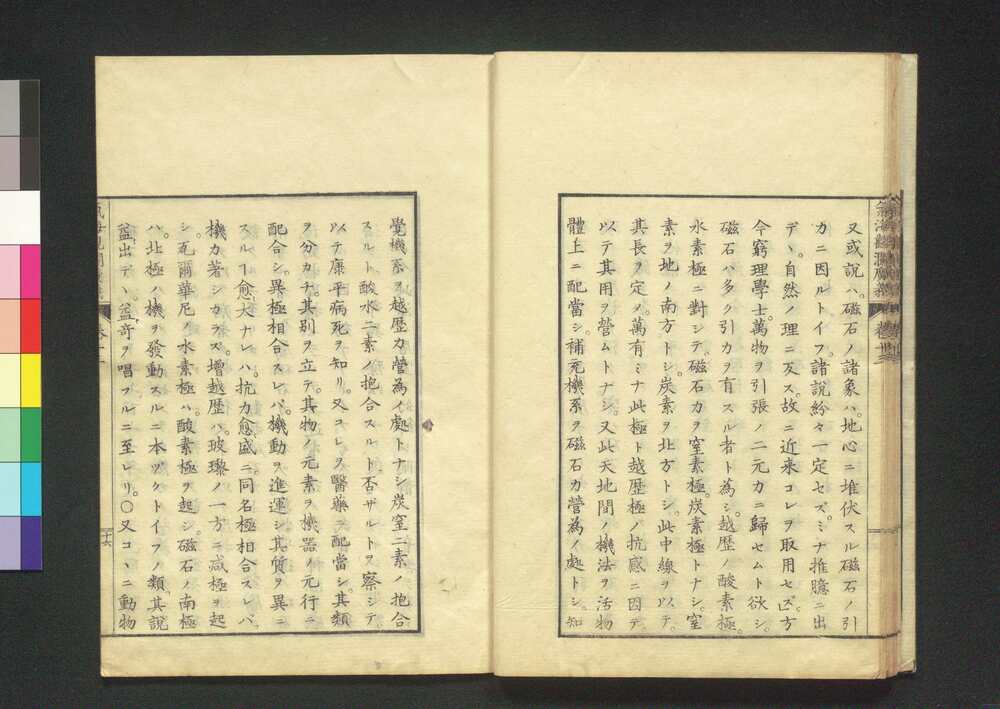 又或説ハ。磁石ノ諸象ハ。地心ニ堆伏スル磁石ノ引
カニ因ルトイフ。諸説紛々一定セズ。ミナ推臆ニ出
デヽ。自然ノ理ニ反ス。故ニ近来コレヲ取用セズ。西方
今窮理學士。萬物ヲ引張ノ二元カニ歸セムト欲シ。
磁石ハ多ク引カヲ有スル者ト為シ。越歴ノ酸素極。
水素極ニ對シテ。磁石カヲ窒素極。炭素極トナシ。窒
素ヲ地ノ南方トシ。炭素ヲ北方トシ。此中線ヲ以テ。
其長ヲ定ノ。萬有ミナ此極ト越歴極ノ抗感ニ因テ。
以テ其用ヲ營ムトナシ。又此天地間ノ機法ヲ活物
體上ニ配當シ。補充機系ヲ磁石力營為ノ處トシ。知
覺機系ヲ越歴力營為ノ處トナシ炭窒二素ノ抱合
スルト。酸水二素ノ抱合スルト否ザルトヲ察シテ。
以テ康平病死ヲ知リ。又コレヲ醫藥ニ配當シ。其類
ヲ分カチ。其別ヲ立テ。其物ノ元素ヲ機器ノ元行ニ
配合シ。異極相合スレバ。機動ヲ進運シ其質ヲ異ニ
スルヿ愈大ナレハ。抗力愈盛ニ。同名極相合スレバ。
機力著シカラス。増越歴ハ。玻瓈ノ一方ニ減極ヲ起
シ。瓦爾華尼ノ水素極ハ。酸素極ヲ起シ。磁石ノ南極
ハ。北極ノ機ヲ發動スルニ本ヅクトイフノ類。其説
益出デヽ。益奇ヲ唱フルニ至レリ。○又コヽニ動物
十六